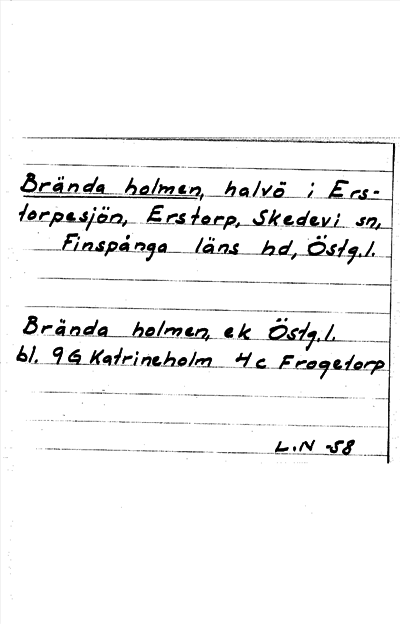 Brända holmen, halvö i Ers-
torpesjön, Erstorp, Skedevi sn,
Finspånga läns hd, Östg.l.
Brända holmen, ek Östg.l.
bl. 9G Katrineholm 4c Frogetorp
L.N -58